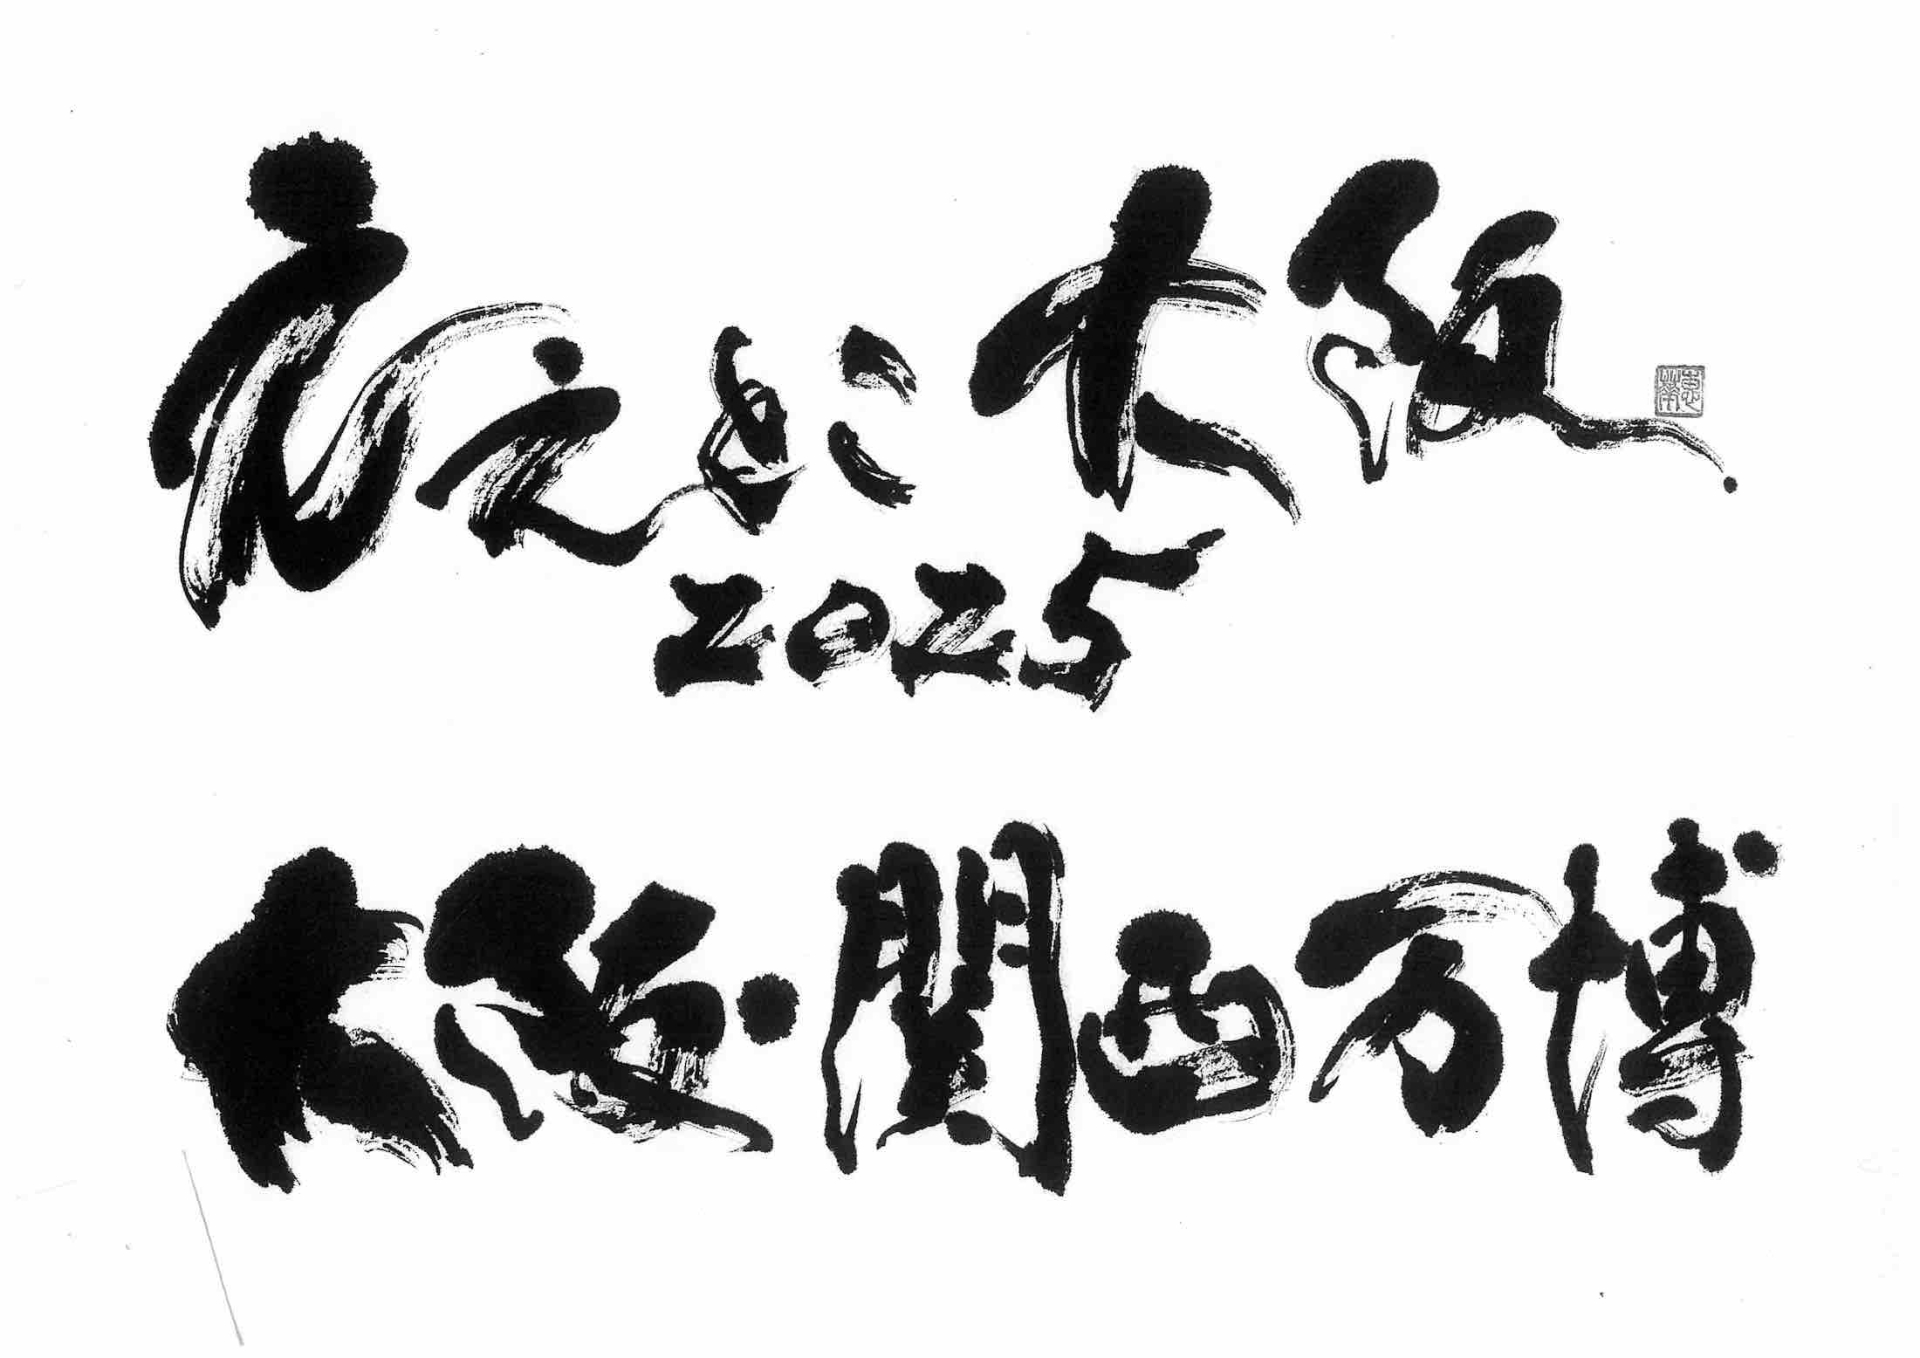 ええとこ大阪
2025
大阪・関西万博